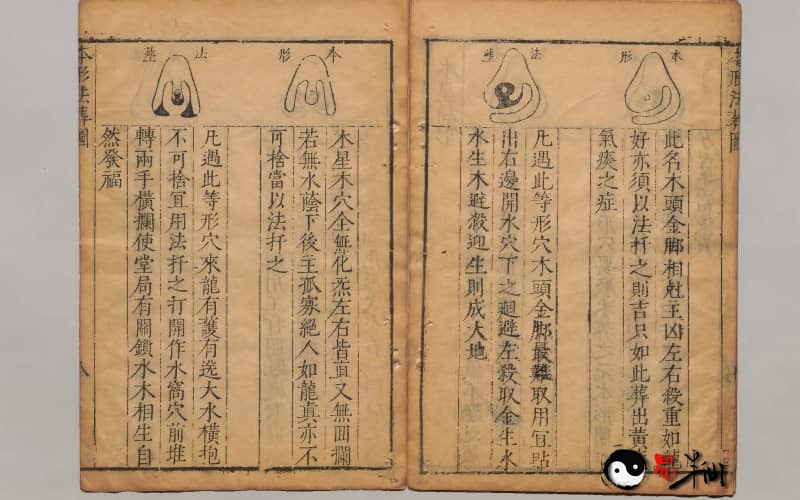 形法葬圖
本形
此名木頭金脚相尅主凶左右殺重如龍
好亦須以法扦之則吉只如此葬出黃
氣痿之症
法塟
凡遇此等形穴木頭金脚最難取用宜點
出右邊開水穴下之迴避左殺取金生水
水生木避殺迎生則成大地
本形
木星木穴全無化炁左右皆直又無回攔
若無水蔭下後主孤寡絕人如龍真亦不
可捨當以法扦之
法塟
凡遇此等形穴來龍有護有送大水橫抱
不可捨宜用法扦之打開作水窩穴前堆
轉兩手橫攔使堂局有關鎖水木相生自
然發福
本形法葬圖
八
易半仙